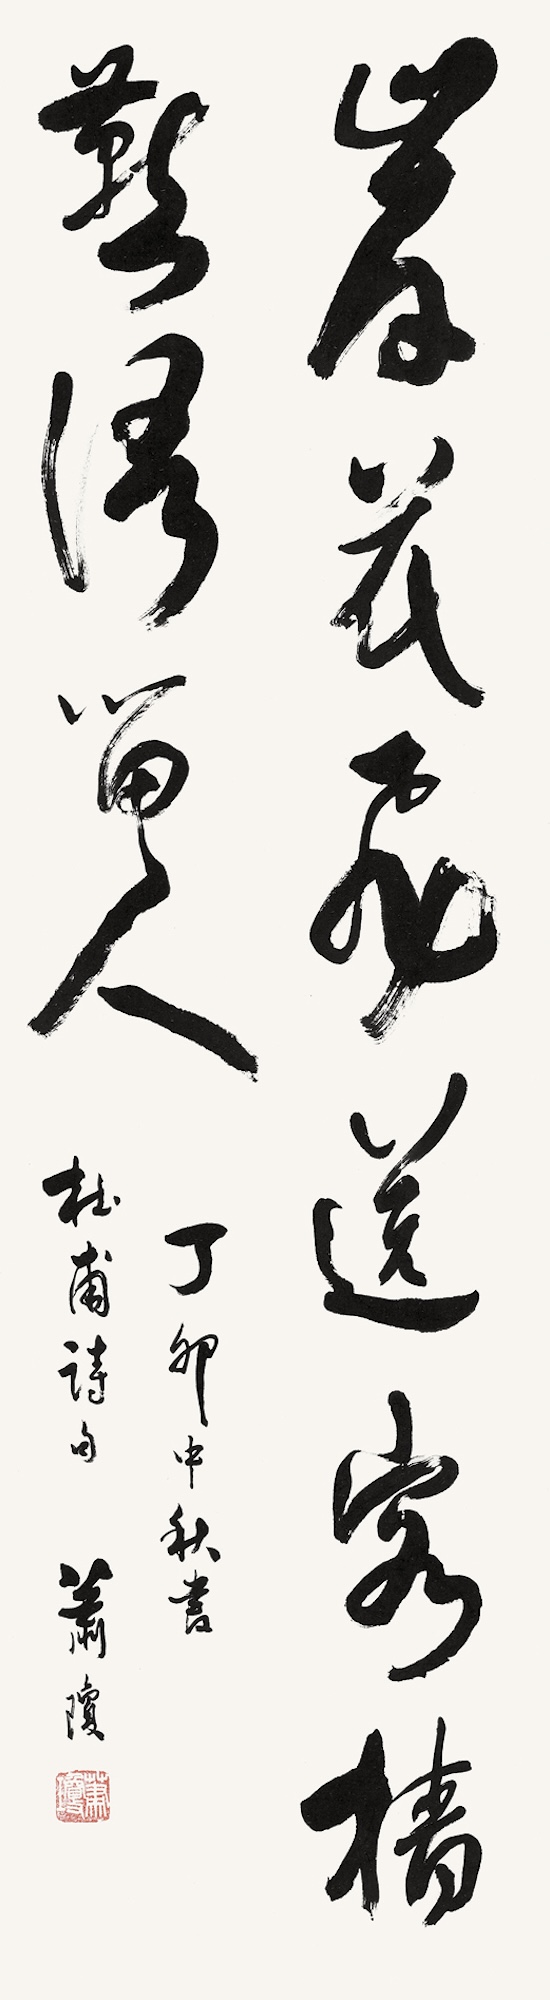 岸花飛送客檣
燕語留人
丁卯中秋書
杜甫詩句 蕭瓊
蕭瓊